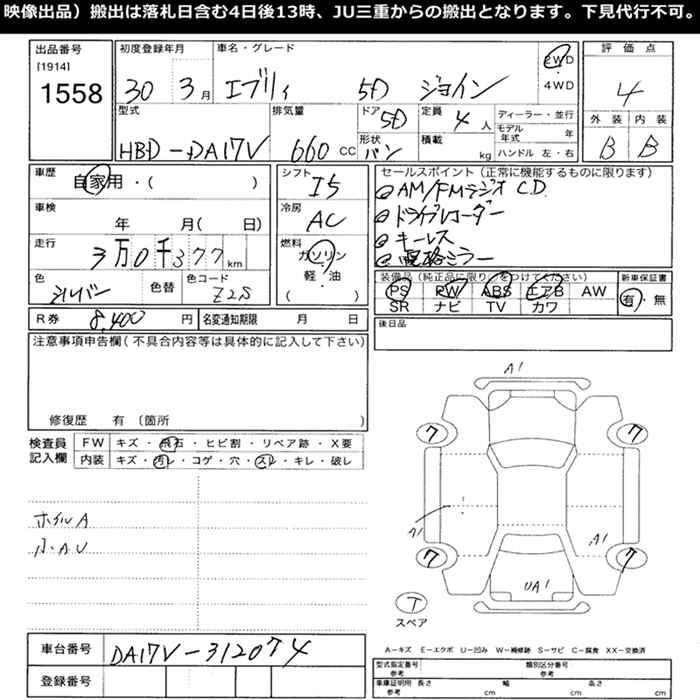 映像出品）搬出は落札日含む4日後13時、JU三重からの搬出となります。下見代行不可。
出品番号
[1914]
1558
初度登録年月
30年 3月
車名・グレード
エブリィ 5D ジョイン
2WD
・
4WD
評価点
4
外装 内装
B B
型式
HBD-DA17V
排気量
660 CC
ドア
5D
形状
バン
定員
4人
積載
kg
ディーラー・並行
モデル年式 年
ハンドル 左・右
車歴
自家用・( )
車検
年 月( 日)
走行
3万0千377km
色
シルバー
色替
色コード
Z2S
シフト
I5
冷房
AC
燃料
ガソリン
・
軽・油
( )
セールスポイント(正常に機能するものに限ります)
①AM/FMラジオ CD
②ドライブレコーダー
③キーレス
装備品(純正品に限り○をつけてください)
PS PW ABS エアB AW
SR ナビ TV カワ
新車保証書
有・無
後日品
R券 8,400円
名変通知期限 月 日
注意事項申告欄(不具合内容等は具体的に記入して下さい)
修復歴 有(箇所 )
検査員
記入欄
FW キズ・飛石・ヒビ割・リペア跡・X要
内装 キズ・汚レ・コゲ・穴・スレ・キレ・破レ
ホイルA
小AU
A1
7 7
A1
7 7
UA1
T
スペア
車台番号
DA17V-312074
登録番号
A-キズ E-エクボ U-凹み W-補修跡 S-サビ C-腐食 XX-交換済
型式指定番号
参考
類別区分番号
参考
車庫証明用
参考
長さ cm 幅 cm 高さ cm